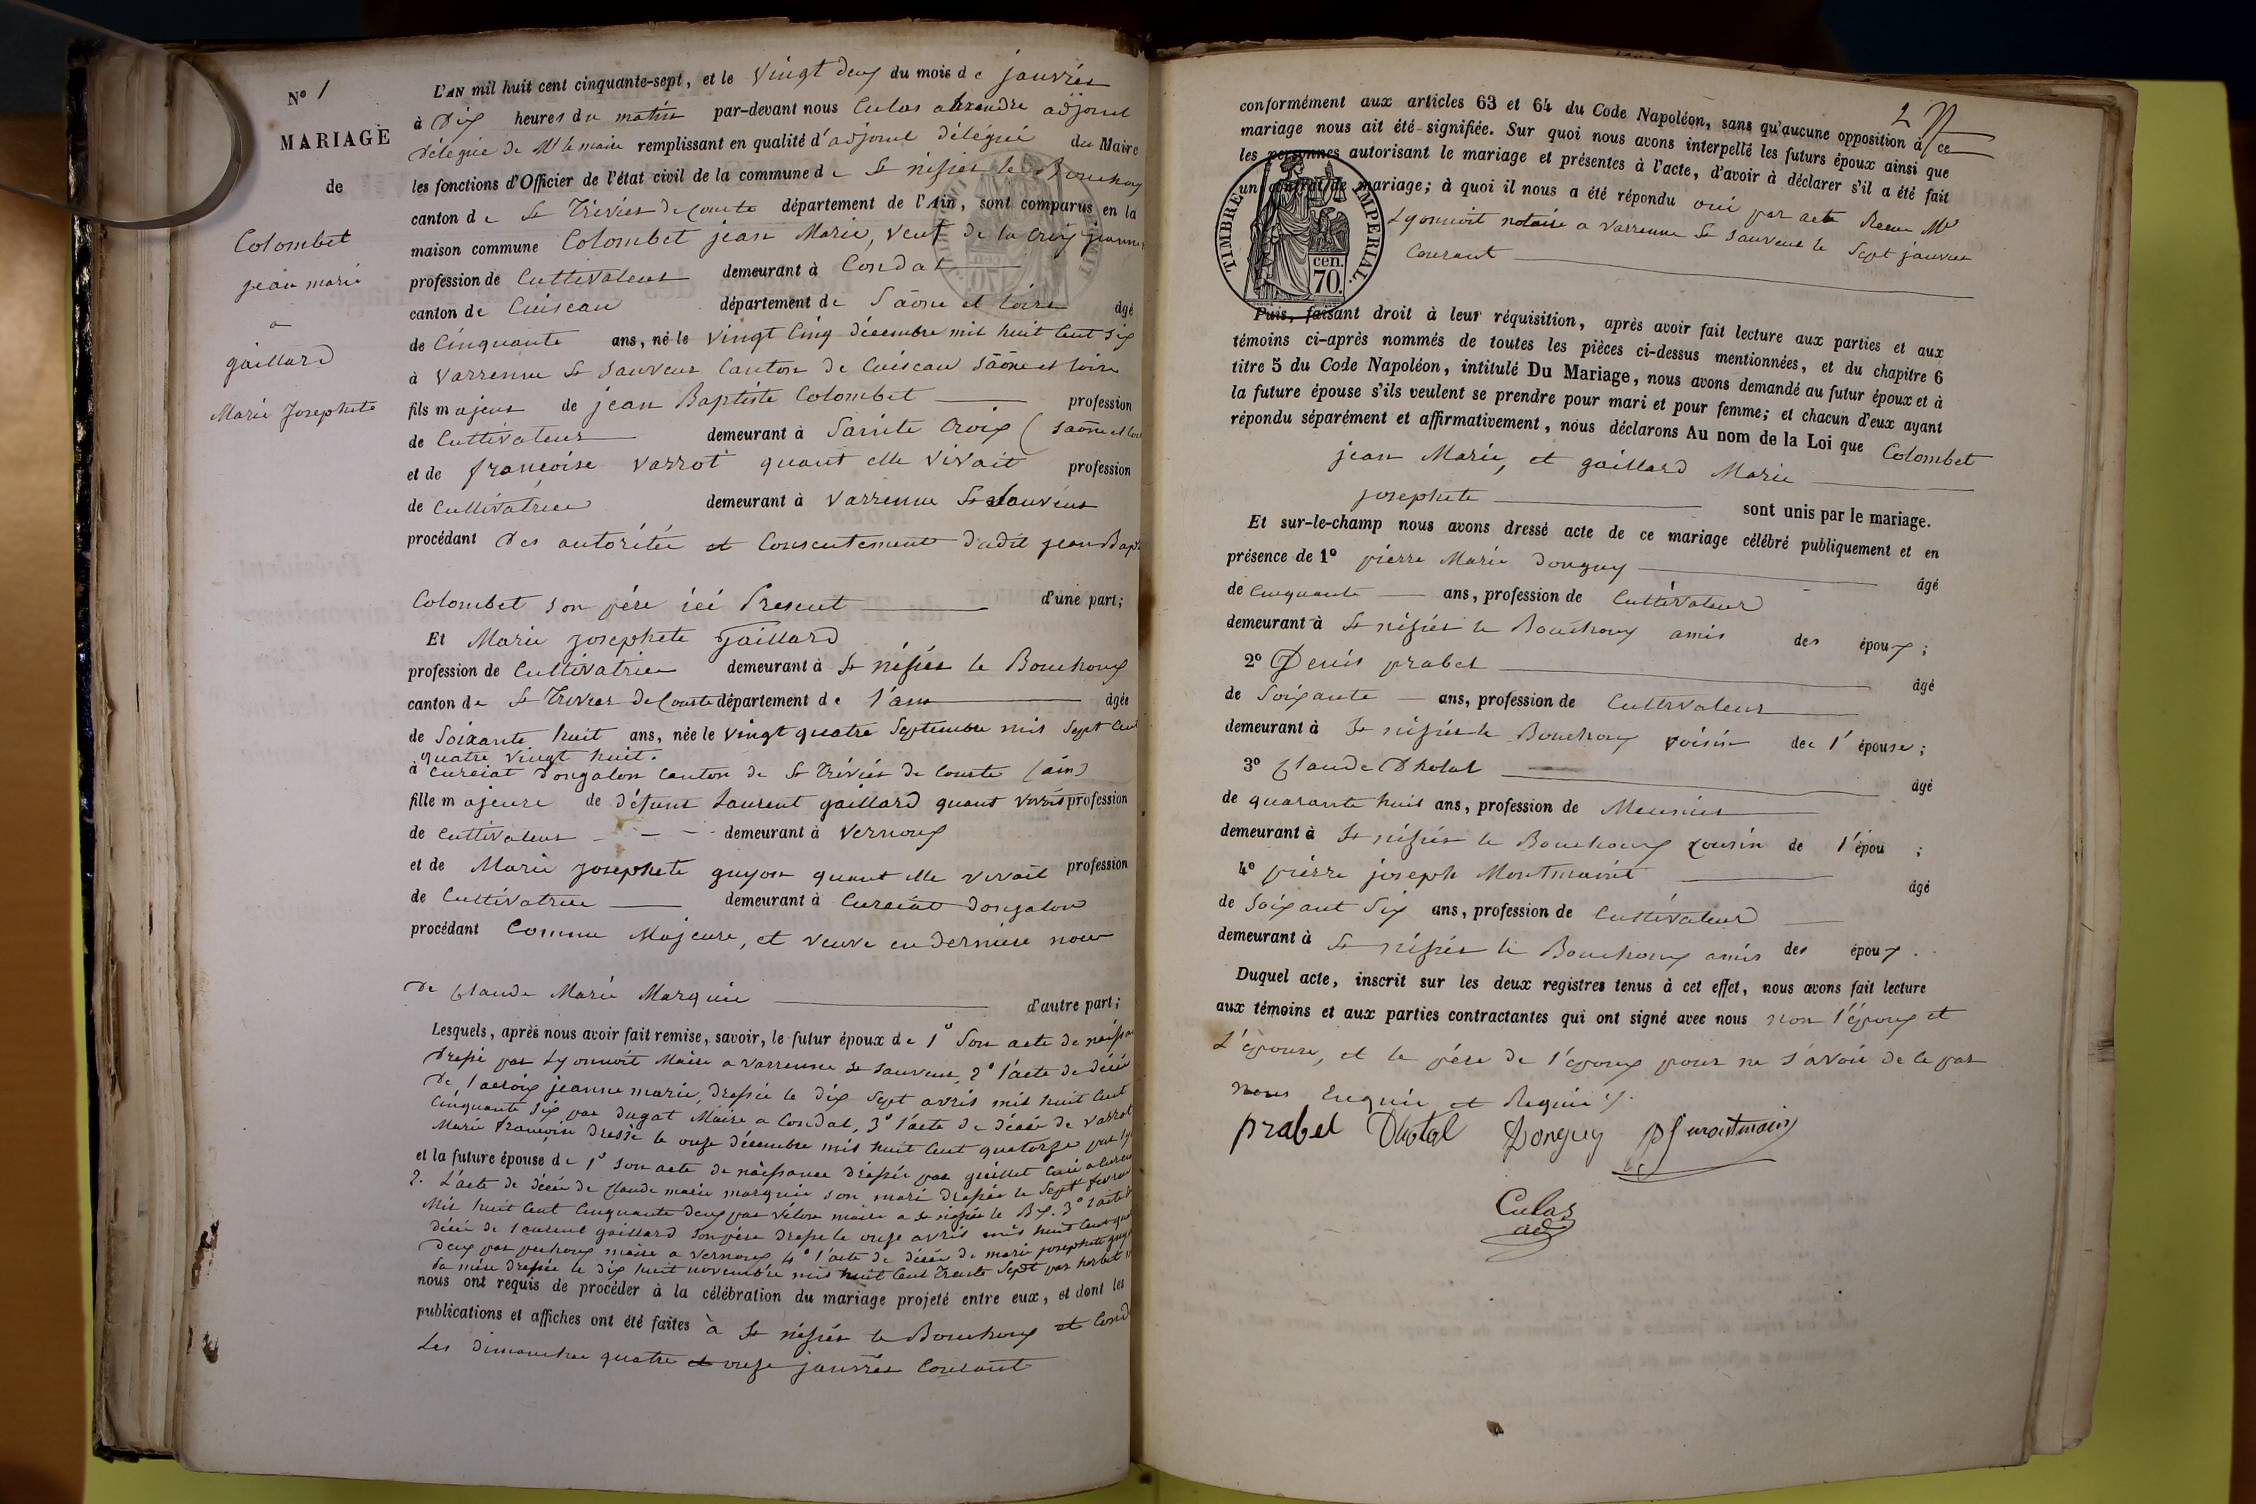 N° 1
MARIAGE
de
Colombet
jean marie
a
gaillard
Marie Josephete
L'AN mil huit cent cinquante-sept, et le Vingt deux du mois de janvier
à Dix heures du matin par-devant nous Culas alexandre adjoint
délégué de Mr le maire remplissant en qualité d'adjoint délégué du Maire
les fonctions d'Officier de l'état civil de la commune de St nisier le Bouchoux
canton de St Trivier de Courte département de l'Ain, sont comparus en la
maison commune Colombet jean Marie, veuf de la Croix jeanne
profession de Cultivateur demeurant à Condal
canton de Cuiseau département de Sâone et Loire âgé
de Cinquante ans, né le Vingt Cinq décembre mil huit Cent Six
à Varrenne St Sauveur Canton de Cuiseau Sâône et loire
fils majeur de jean Baptiste Colombet profession
de Cultivateur demeurant à Sainte Croix (Saône et Loi
et de françoise Varrot quant elle vivait profession
de Cultivatrice demeurant à Varrenne St Sauveur
procédant Des autorité et Consentement dudit jean Bapt
Colombet son père ici Present d'une part;
Et Marie Josephete Gaillard
profession de Cultivatrice demeurant à St nisier le Bouchoux
canton de St Trivier de Courte département de l'ain âgée
de Soixante huit ans, née le vingt quatre Septembre mil Sept Cent
quatre vingt huit.
à Curciat dongalon Canton de St Trivier de Courte (ain)
fille majeure de défunt Laurent gaillard quant vivait profession
de Cultivateur demeurant à Vernoux
et de Marie Josephete guyon quant elle vivait profession
de Cultivatrice demeurant à Curciat dongalon
procédant Comme Majeure, et veuve en derniere noce
de Claude Marie Marquis d'autre part;
Lesquels, après nous avoir fait remise, savoir, le futur époux de 1° Son acte de naissa
Dressé par Lyonnoit Maire a Varrenne St Sauveur, 2° l'acte de décé
De lacroix jeanne marie, dressée le dix Sept avril mil huit Cent
Cinquante Six par dugat Maire a Condal, 3° l'acte de décée de Varrot
Marie françoise dressé le onze décembre mil huit Cent quatorze par ly
et la future épouse de 1° son acte de naissance dréssée par guillet Curé a Curci
2. L'acte de décée de Claude marie marquis son mari dressée le Sept fevrier
Mil huit Cent Cinquante deux par Vélon maire a St nisier le Bx. 3° l'acte d
décée de laurent gaillard Son père dressé le onze avril mil huit Cent qua
deux par pochoux maire a Vernoux, 4° l'acte de décée de marie josephete guy
Sa mère dressée le dix huit novembre mil huit Cent Trente Sept par herbet
nous ont requis de procéder à la célébration du mariage projeté entre eux, et dont les
publications et affiches ont été faites à St nisier le Bouchoux et Cond
Les dimanches quatre et onze janvier Courant
2
conformément aux articles 63 et 64 du Code Napoléon, sans qu'aucune opposition à ce
mariage nous ait été signifiée. Sur quoi nous avons interpellé les futurs époux ainsi que
les personnes autorisant le mariage et présentes à l'acte, d'avoir à déclarer s'il a été fait
un contrat de mariage; à quoi il nous a été répondu oui par acte Recue Mr
Lyonnoit notaire a Varrenne St Sauveur le Sept janvier
Courant
TIMBRE IMPERIAL
cen.
70.
Puis, faisant droit à leur réquisition, après avoir fait lecture aux parties et aux
témoins ci-après nommés de toutes les pièces ci-dessus mentionnées, et du chapitre 6
titre 5 du Code Napoléon, intitulé Du Mariage, nous avons demandé au futur époux et à
la future épouse s'ils veulent se prendre pour mari et pour femme; et chacun d'eux ayant
répondu séparément et affirmativement, nous déclarons Au nom de la Loi que Colombet
jean Marie, et gaillard Marie
josephete sont unis par le mariage.
Et sur-le-champ nous avons dressé acte de ce mariage célébré publiquement et en
présence de 1° pierre Marie donguy âgé
de Cinquante ans, profession de Cultivateur
demeurant à St nisier le Bouchoux amis des époux;
2° Denis prabel âgé
de Soixante ans, profession de Cultivateur
demeurant à St nisier le Bouchoux voisin de l'épouse;
3° Claude Dhotal âgé
de quarante huit ans, profession de Meunier
demeurant à St nisier le Bouchoux cousin de l'épou ;
4° pierre joseph Montmain âgé
de Soixant Six ans, profession de Cultivateur
demeurant à St nisier le Bouchoux amis des époux.
Duquel acte, inscrit sur les deux registres tenus à cet effet, nous avons fait lecture
aux témoins et aux parties contractantes qui ont signé avec nous non l'époux et
L'épouse, et le père de l'époux pour ne savoir de ce par
nous Enquis et Requis
prabel Dhotal Donguy pJ montmain
Culas
adj